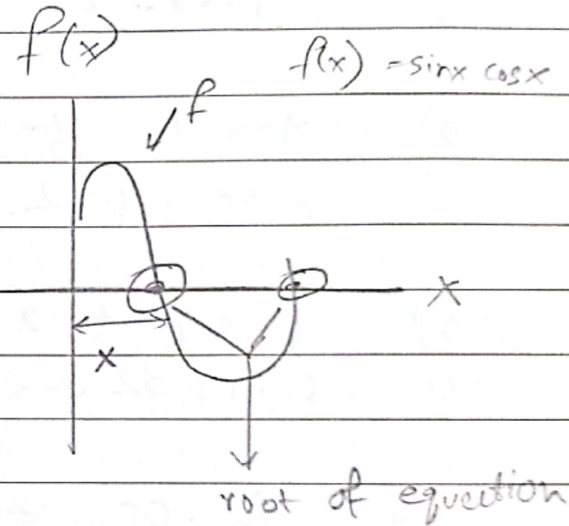 f(x)
f(x) = sinx cosx
f
X
x
root of equection